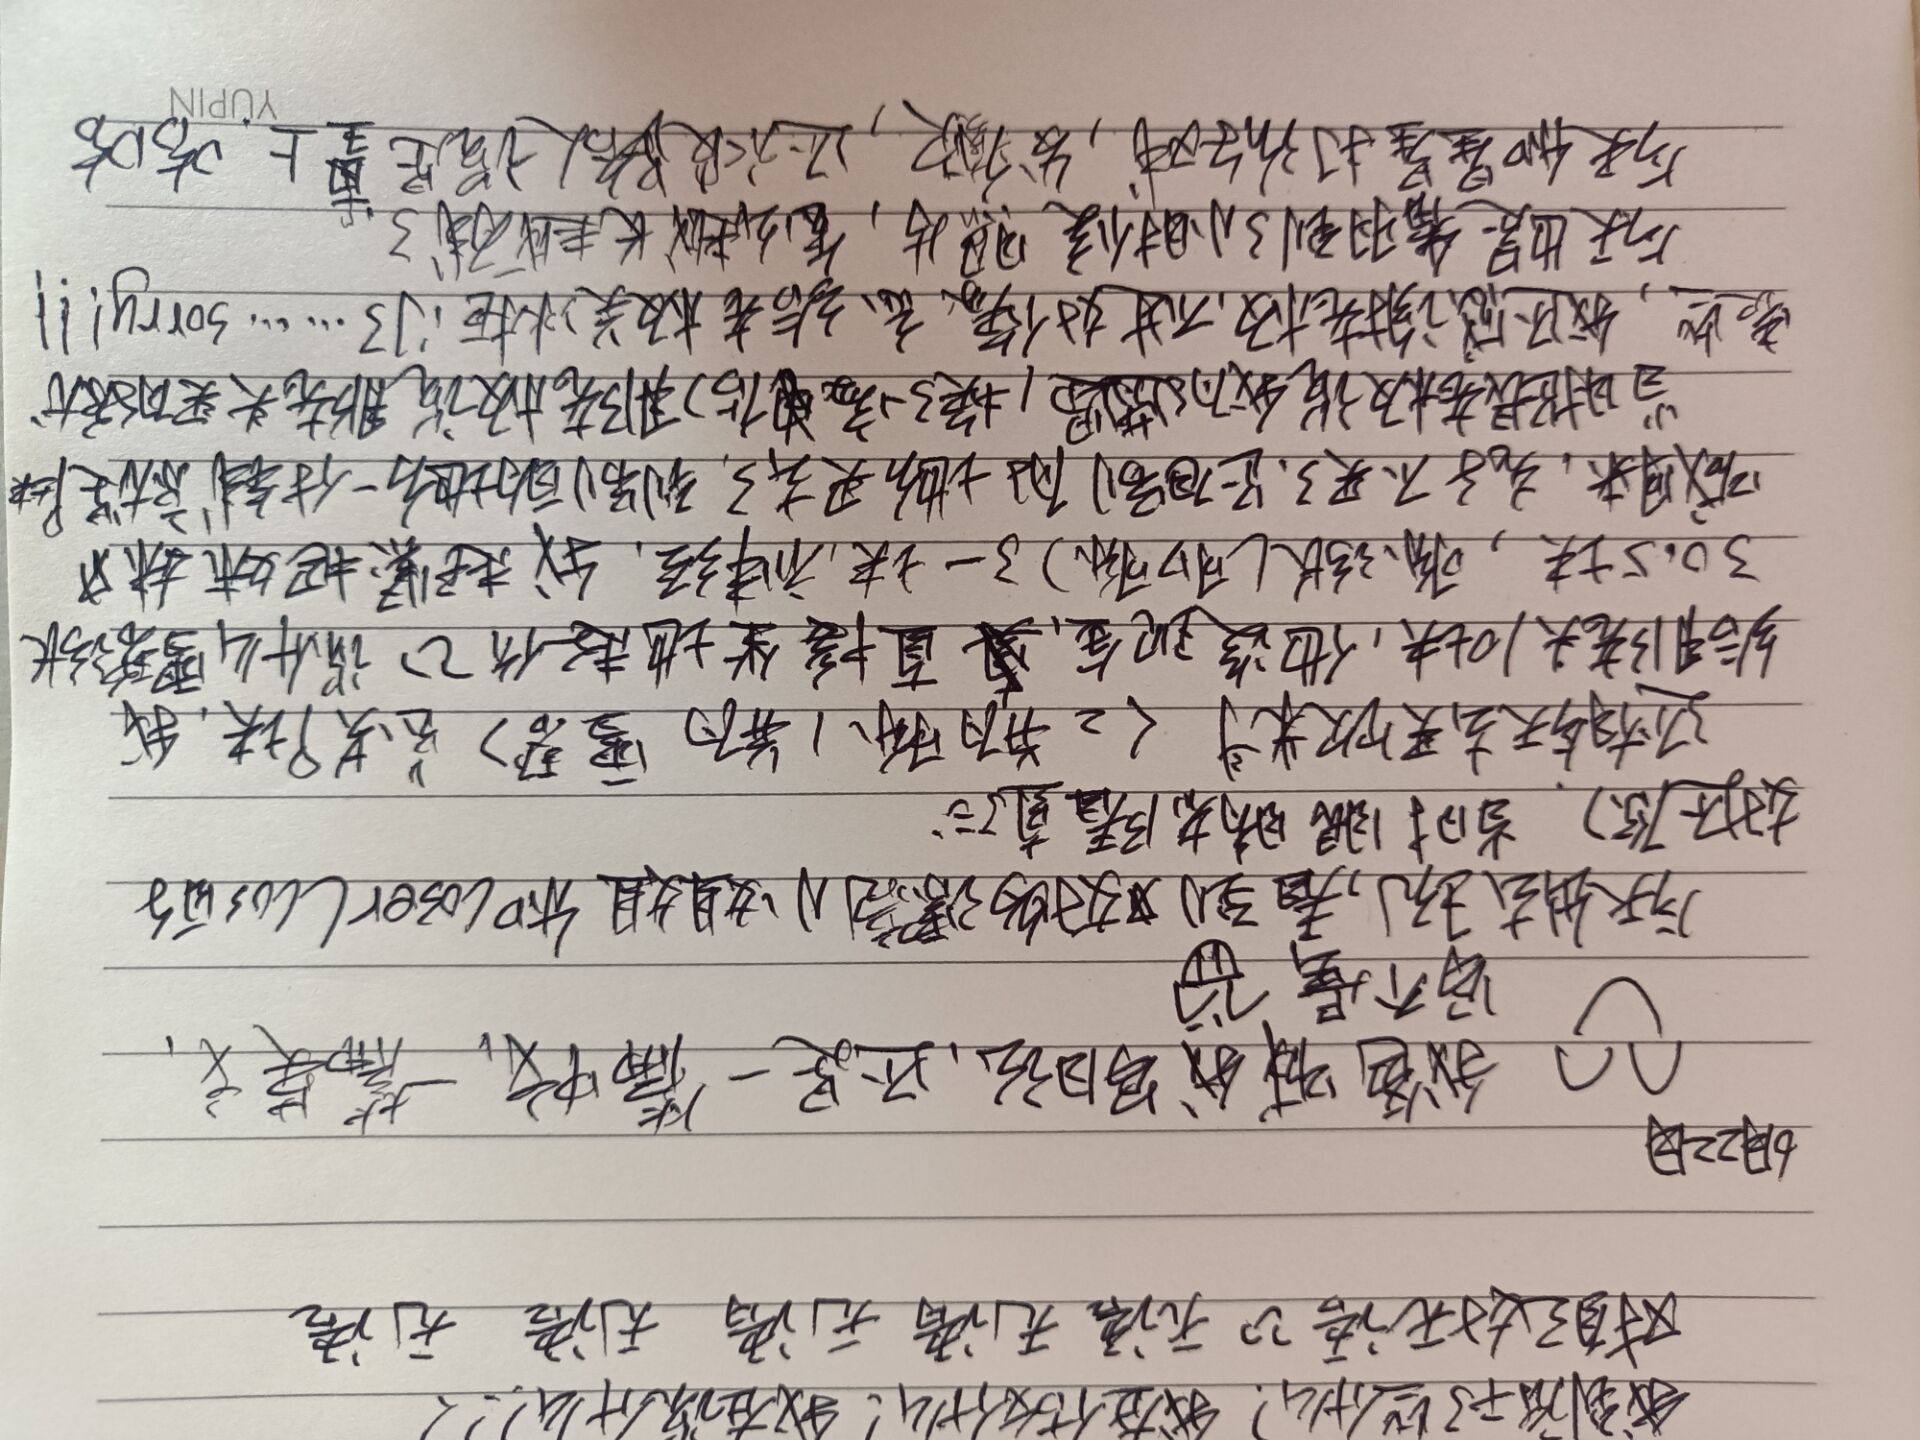 我到底干了些什么？我在做什么！我在说什么！？？
对自己好无语 无语 无语 无语 无语 无语
6月22日
我爸喊我写日记，还是一篇中文，一篇英文，
写个蛋
今天出去玩，看到好的漂亮小姐姐和coser（cos的
好还原）.当时眼睛都看直了
还有今天去买饮料（2瓶可乐，1瓶雪碧）总共9块，我
给那老头10块，他没现金，直接坐地起价 说什么雪碧涨
了0.5块，可乐涨（可口可乐）了一块，神经，我赶紧把妹妹
喊回来，老子不买了，还有别的地方买去了，到别的地方一付钱就是9块
当时跟老板说我的遭遇，（换了家店）那老板说那老头卖的就
贵些，我还感谢老板，不过好像忘给老板关冰柜门了……sorry!!!
今天也是翻到了小时候照片，怎么越长越残了.
今天和星星打游戏，发癫，还被路人说是上.哈哈
YUPIN